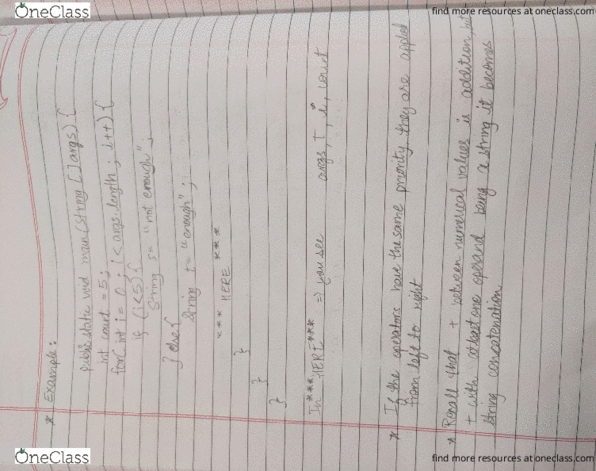 OneClass
find more resources at oneclass.com
* Example:
public static void main(String[]args){
int count = 5;
for( int i = 0 ; i < args.length ; i++){
if (i<5){
String s= "not enough";
} else{
String t= "enough";
*** HERE ***
}
}
}
In ***HERE*** => you see args, t, i, count
* If the operators have the same priority they are applied
from left to right
* Recall that + between numerical values is addition, but
+ with atleast one operand being a string it becomes
string concatenation.
OneClass
find more resources at oneclass.com